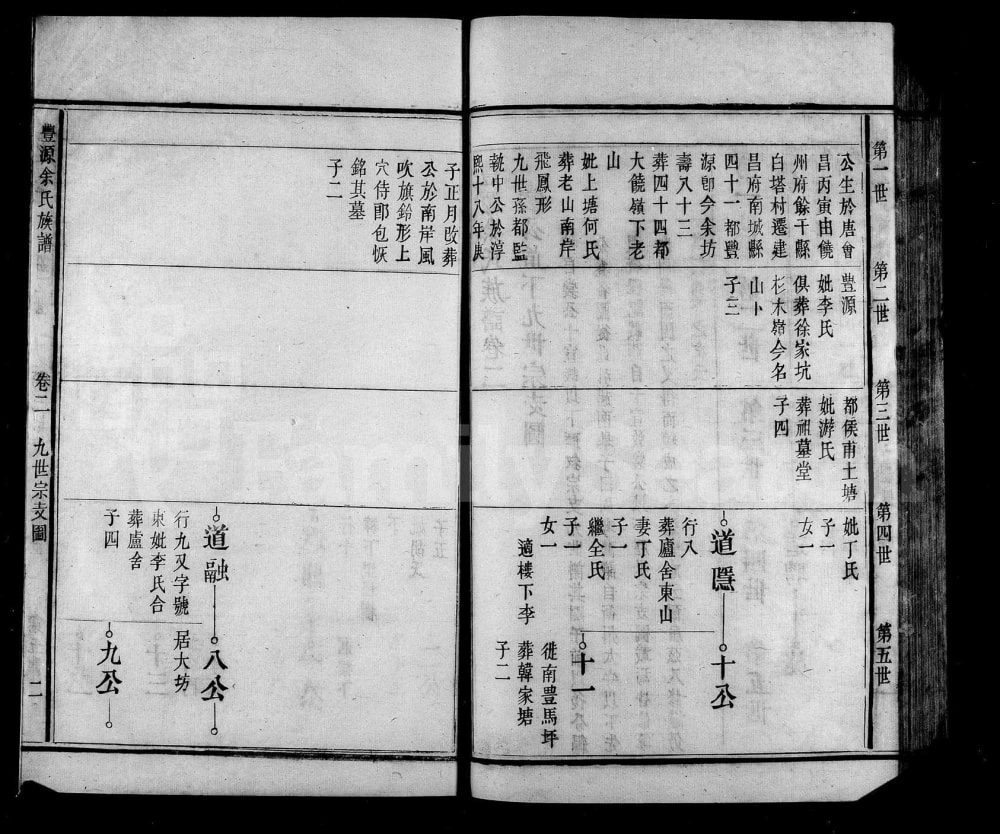 第一世
公生於唐會
昌丙寅由饒
州府餘干縣
白塔村遷建
昌府南城縣
四十一都豐
源卽今余坊
壽八十三
葬四十四都
大饒嶺下老
山
妣上塘何氏
葬老山南岸
飛鳳形
九世孫都監
執中公於淳
熙十八年庚
第二世
豐源
妣李氏
俱葬徐家坑
杉木嶺今名
山卜
子三
第三世
都侯甫土塘
妣游氏
葬祖墓堂
子四
第四世
妣丁氏
子一
女一
道隱
行八
葬廬舍東山
妻丁氏
子一
繼全氏
子一
女一
適樓下李
第五世
十公
十一
徙南豐馬坪
葬韓家塘
子二
子正月改葬
公於南岸風
吹旗鈴形上
穴侍郎包恢
銘其墓
子二
道融
行九又字號
東妣李氏合
葬廬舍
子四
八公
居大坊
九公
豐源余氏族譜
卷二
九世宗支圖
二